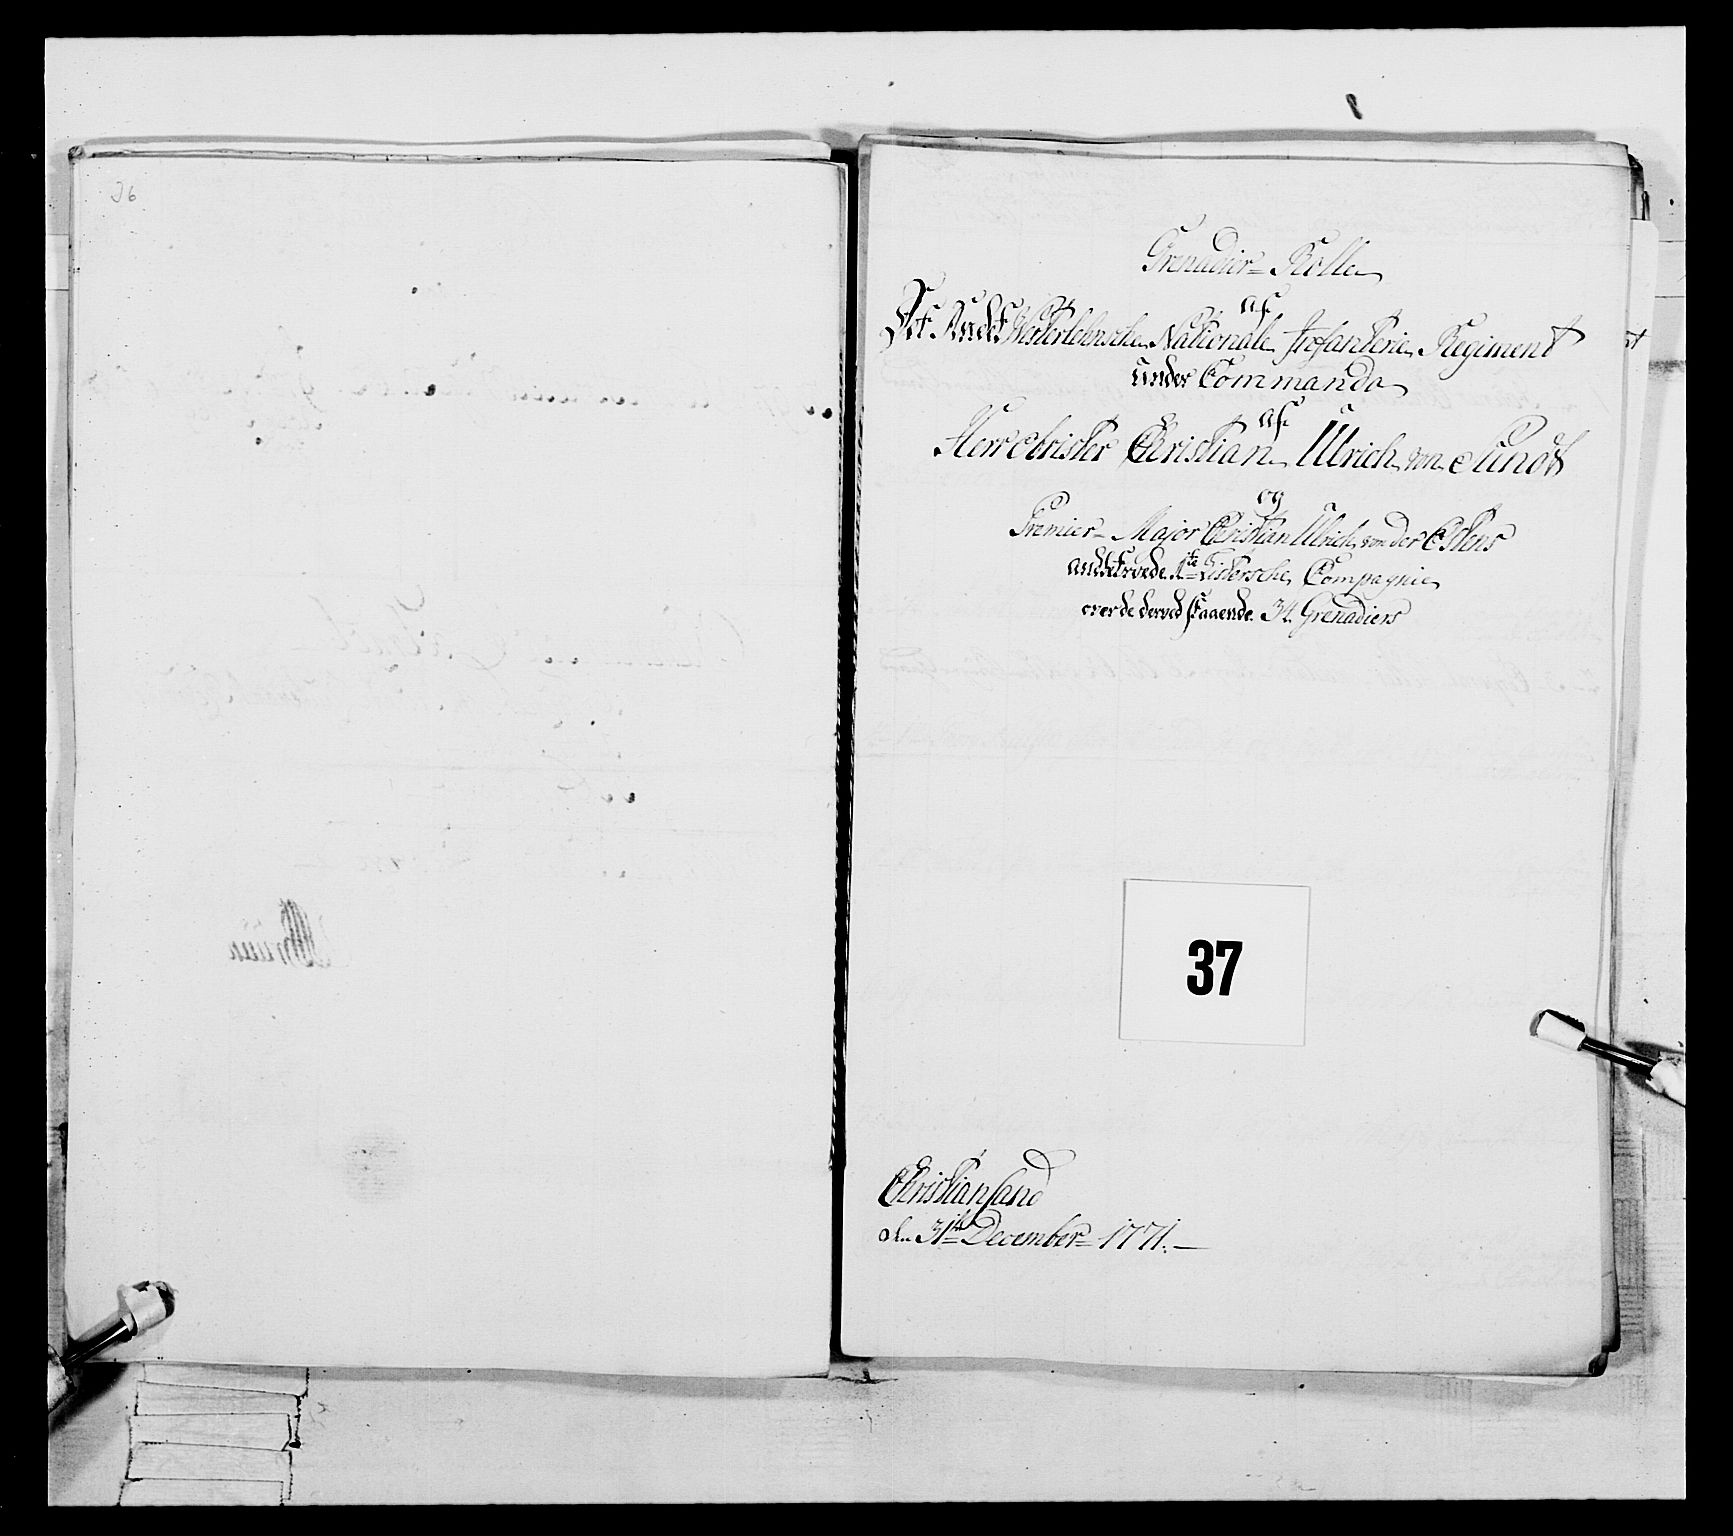 36
Grenadier= Rolle
af
Det Andet Westerlehnske Nationale Infanterie Regiment
under Commando
af
Herr Obrister Christian Ulrich von Sundt
og
Premier= Major Christian Ulrich von der Ostens
andetroede 1te Listerske Compagnie
over de derved staaende 34 Grenadiers
37
Christiansand
den 31te December= 1771.